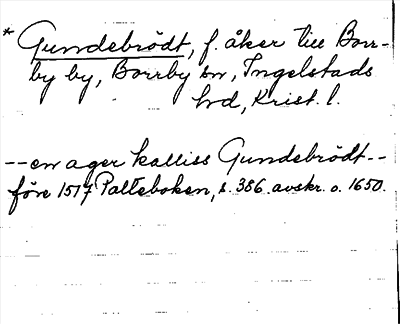 * Gundebrödt, f. åker till Borr-
by by, Borrby sn, Ingelstads
hd, Krist. l.
--en ager kalliss Gundebrödt--
före 1517 Palteboken, s. 386. avskr. o. 1650.